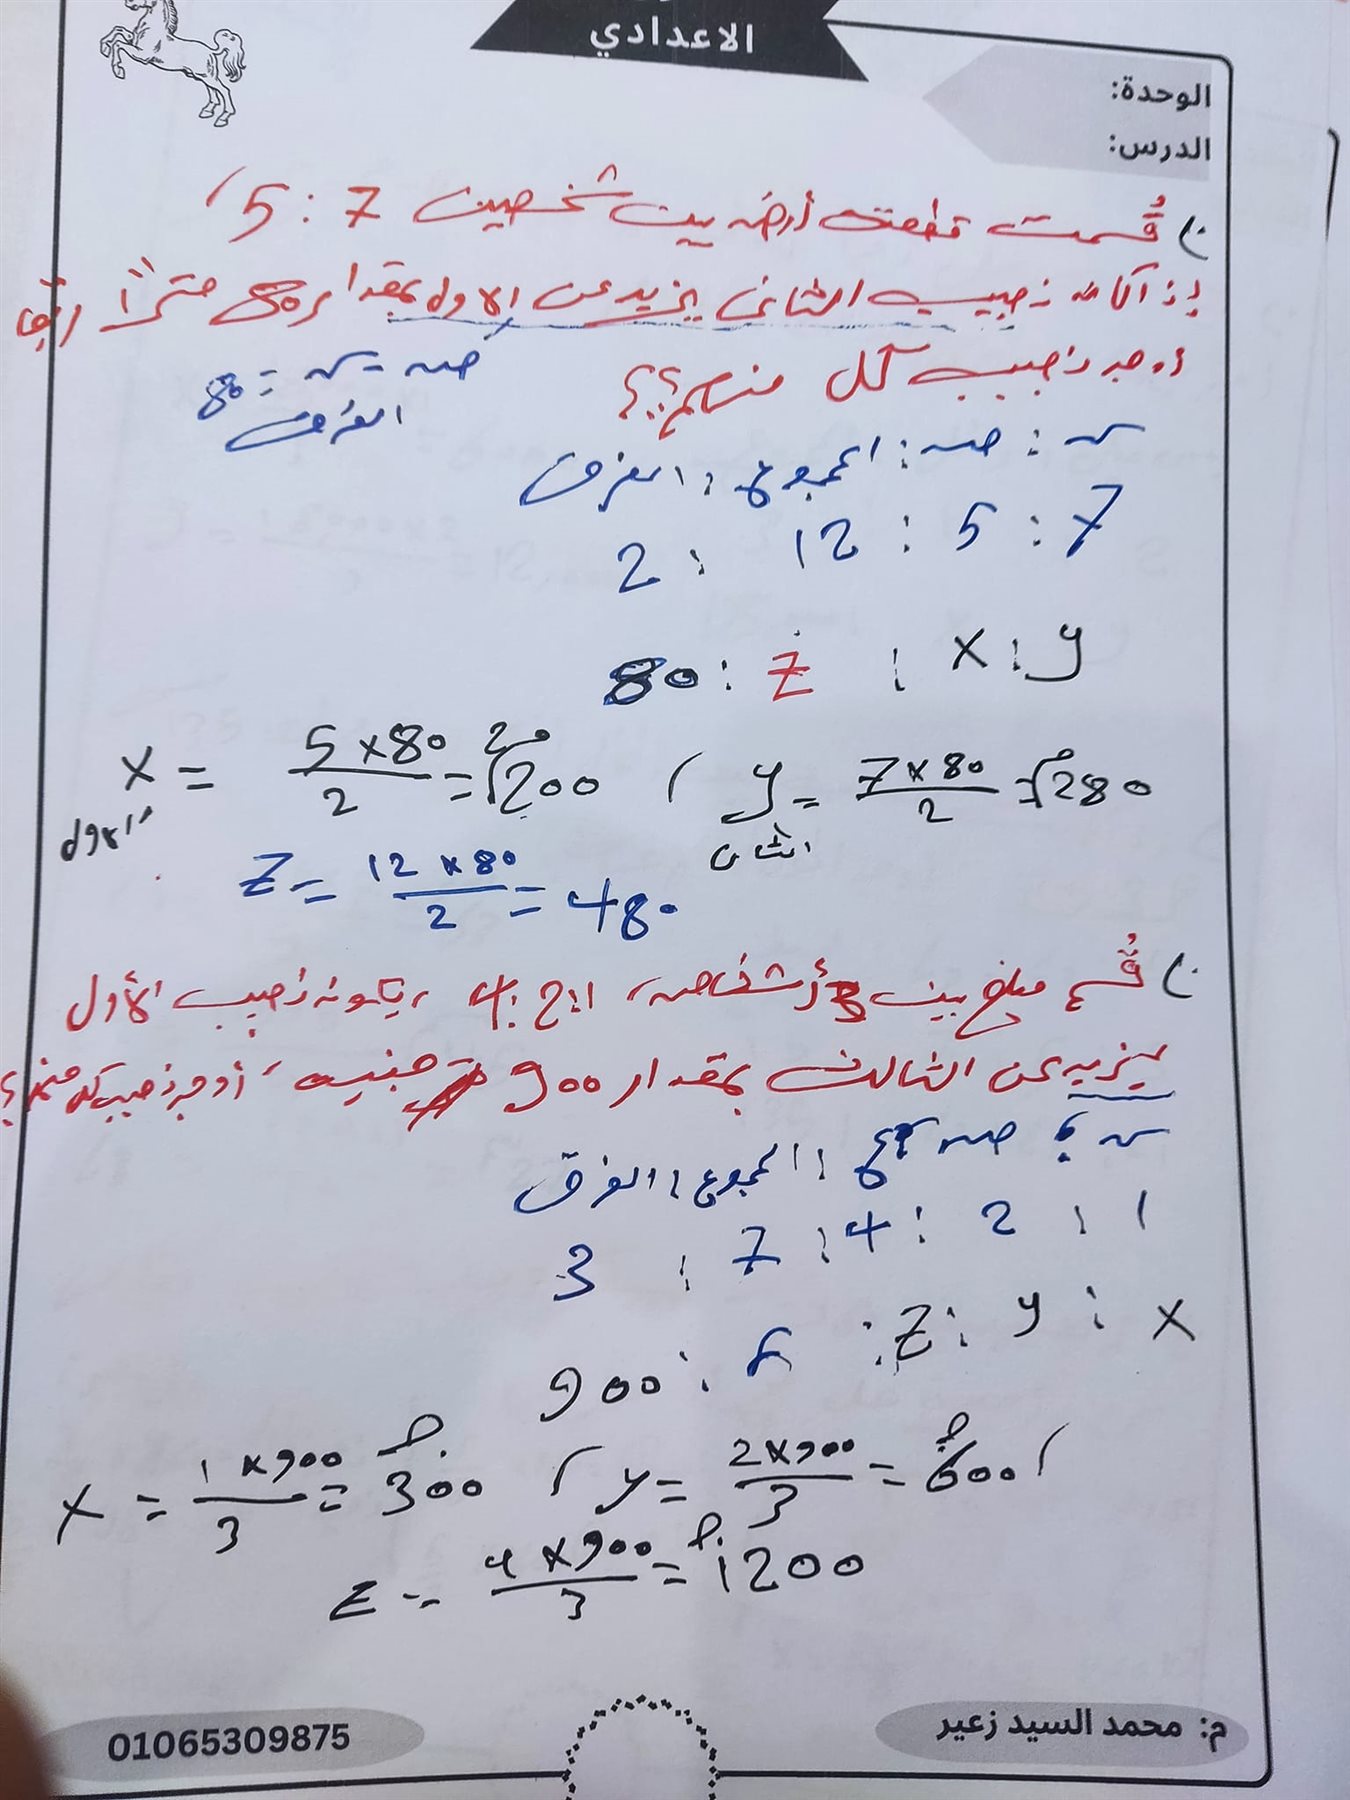 الاعدادي
الوحدة:
الدرس:
قُسمت قطعة أرض بين شخصين 7 : 5 ،
إذا كان نصيب الثانى يزيد عن الاول بمقدار 80 مترًا
أوجد نصيب كل منهم؟؟
صـ - سـ = 80
الفرق
سـ : صـ : المجموع : الفرق
7 : 5 : 12 : 2
y : x : z : 80
x = 5 × 80 / 2 = 200 ، y = 7 × 80 / 2 = 280
الاول
الثانى
z = 12 × 80 / 2 = 480
قُسم مبلغ بين 3 أشخاص، 1 : 2 : 4 ، نصيب الأول
يزيد عن الثالث بمقدار 900 جنيه ، أوجد نصيب كل منهم؟
سـ : صـ : ع : المجموع : الفرق
1 : 2 : 4 : 7 : 3
x : y : z : : 900
x = 1 × 900 / 3 = 300 ، y = 2 × 900 / 3 = 600 ،
z = 4 × 900 / 3 = 1200
م: محمد السيد زعير
01065309875